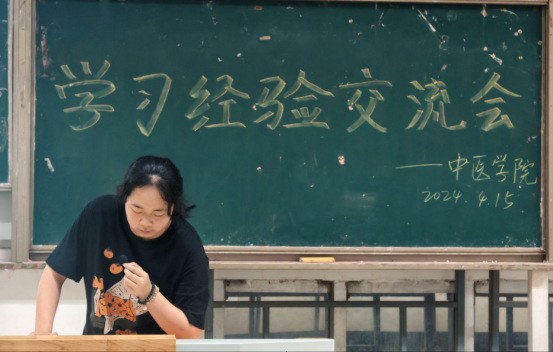 学习经验交流会
——中医学院
2024.4.15